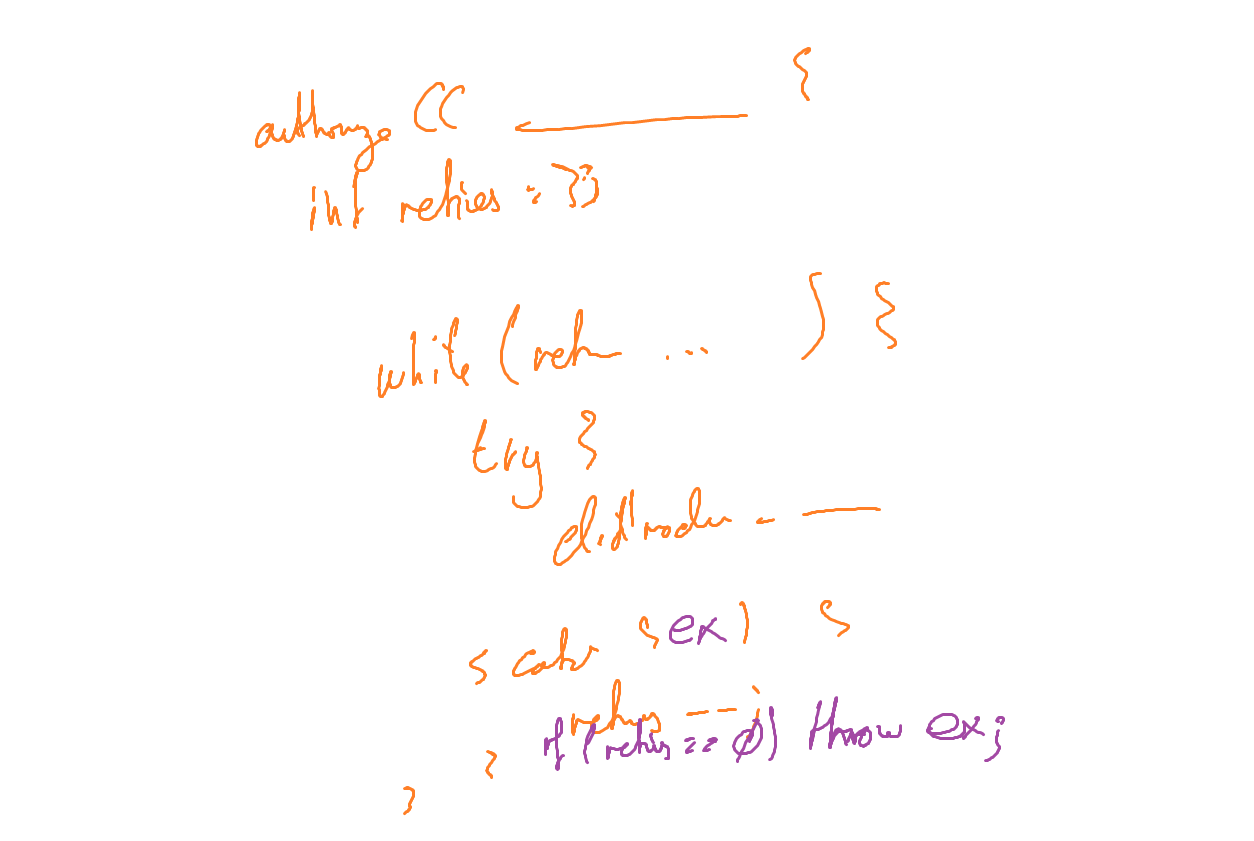 authorize CC {
int retries = 3;
while (retr ... ) {
try {
} catch (ex) {
retries --;
if (retries == 0) throw ex;
}
}